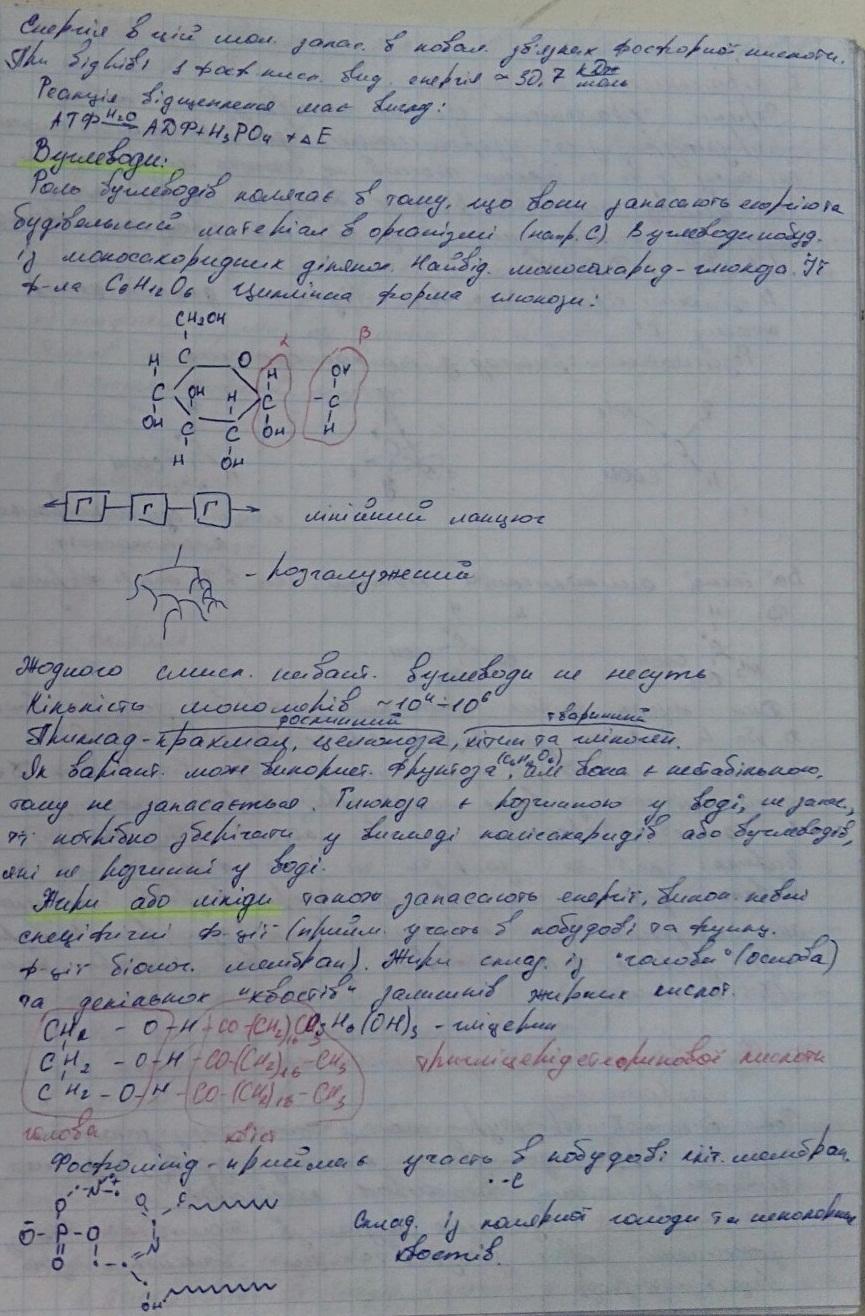 Енергія в цій мол. запас. в ковал. зв'язках фосфорної кислоти.
При відщівл 1 фосф кисл. вид. енергія ≈ 30,7 кДж/моль
Реакція відщеплення має вигляд:
АТФ H₂O АДФ+H₃PO₄ + ΔE
Вуглеводи:
Роль вуглеводів полягає в тому, що вони запасають енергію та
будівельний матеріал в організмі (напр. С). Вуглеводи побуд.
із моносахоридних ділянок. Найвід. моносахарид - глюкоза. Її
ф-ла C₆H₁₂O₆. Циклічна форма глюкози:
CH₂OH
C
H O α β
H OH
C OH H C C
OH C C OH H
H OH
Г Г Г лінійний ланцюг
- розгалужений
Жодного смисл. навант. вуглеводи не несуть
Кількість мономерів ~10⁴÷10⁶
рослинний тваринний
Приклад - крахмал, целюлоза, хітин та глікоген.
Як варіант. може використ. фруктоза (C₆H₁₂O₆), але вона є нестабільною,
тому не запасається. Глюкоза є розчиною у воді, не запас,
її потрібно зберігати у вигляді полісахаридів або вуглеводів,
які не розчинні у воді.
Жири або ліпіди також запасають енергії, викон. певні
специфічні ф-ції (прийм. участь в побудові та функц.
ф-ції біолог. мембран). Жири склад. із "голови" (основа)
та декількох "хвостів" залишків жирних кислот.
CH₂ - O - H - CO-(CH₂)₁₆ (OH)₃ - гліцерин
CH₂ - O - H - CO-(CH₂)₁₆ - CH₃ тригліцерід стеоринової кислоти
CH₂ - O - H - CO-(CH₂)₁₆ - CH₃
голова хвіст
Фосфоліпід - приймає участь в побудові кліт. мембран.
··-C
O N⁺ O
O⁻ - P - O Склад. із полярної голови та неполярних
O N хвостів.
OH